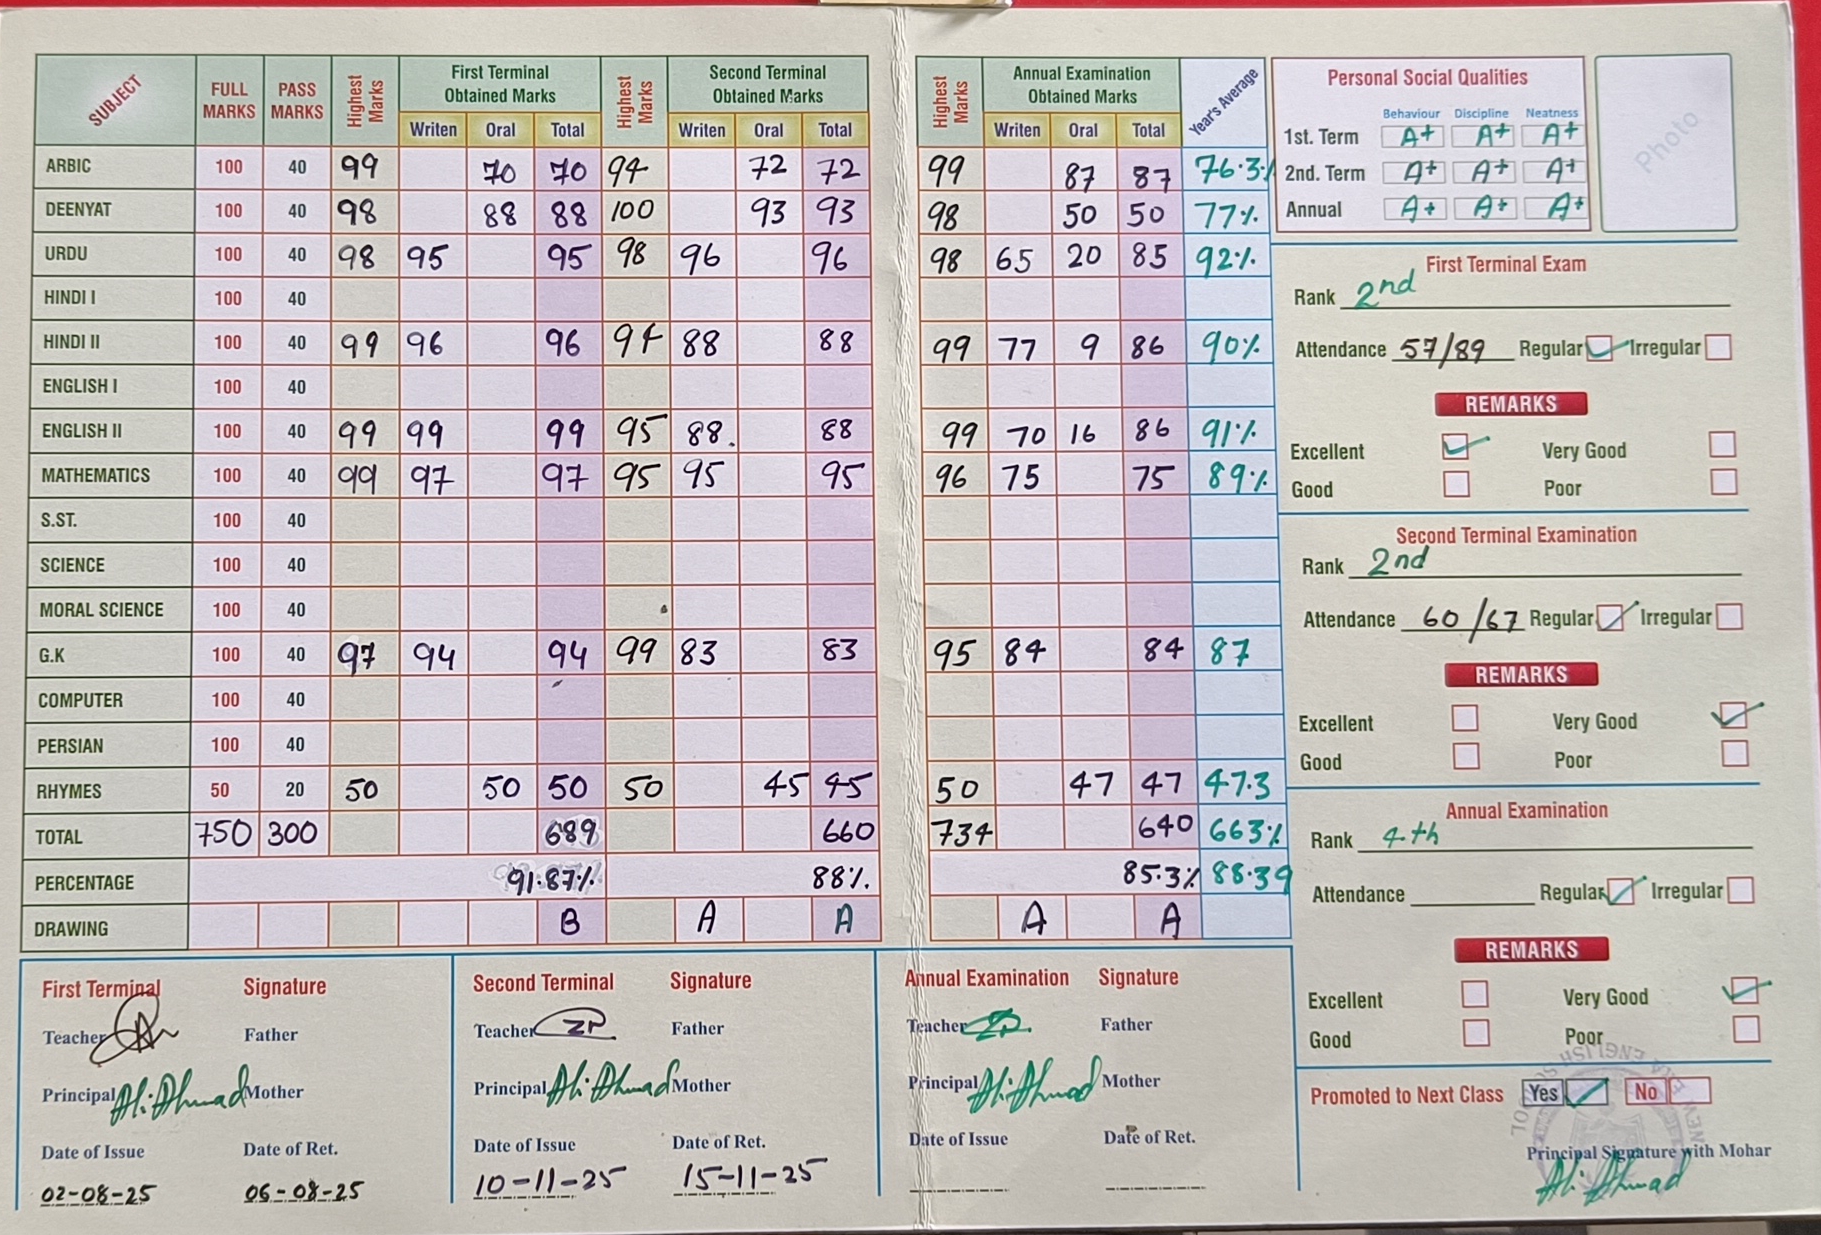 SUBJECT FULL MARKS PASS MARKS Highest Marks First Terminal Obtained Marks Highest Marks Second Terminal Obtained Marks Highest Marks Annual Examination Obtained Marks Year's Average
Writen Oral Total Writen Oral Total Writen Oral Total
ARBIC 100 40 99 70 70 94 72 72 99 87 87 76.3%
DEENYAT 100 40 98 88 88 100 93 93 98 50 50 77%
URDU 100 40 98 95 95 98 96 96 98 65 20 85 92%
HINDI I 100 40
HINDI II 100 40 99 96 96 94 88 88 99 77 9 86 90%
ENGLISH I 100 40
ENGLISH II 100 40 99 99 99 95 88. 88 99 70 16 86 91%
MATHEMATICS 100 40 99 97 97 95 95 95 96 75 75 89%
S.ST. 100 40
SCIENCE 100 40
MORAL SCIENCE 100 40
G.K 100 40 97 94 94 99 83 83 95 84 84 87
COMPUTER 100 40
PERSIAN 100 40
RHYMES 50 20 50 50 50 50 45 45 50 47 47 47.3
TOTAL 750 300 689 660 734 640 663%
PERCENTAGE 91.87% 88%. 85.3% 88.39
DRAWING B A A A A
Personal Social Qualities
Behaviour Discipline Neatness
1st. Term A+ A+ A+
2nd. Term A+ A+ A+
Annual A+ A+ A+
Photo
First Terminal Exam
Rank 2nd
Attendance 57/89 Regular Irregular
REMARKS
Excellent Very Good
Good Poor
Second Terminal Examination
Rank 2nd
Attendance 60/67 Regular Irregular
REMARKS
Excellent Very Good
Good Poor
Annual Examination
Rank 4th
Attendance Regular Irregular
REMARKS
Excellent Very Good
Good Poor
Promoted to Next Class Yes No
Principal Signature with Mohar
Ali Ahmad
First Terminal Signature
Teacher Father
Principal Ali Ahmad Mother
Date of Issue Date of Ret.
02-08-25 06-08-25
Second Terminal Signature
Teacher Father
Principal Ali Ahmad Mother
Date of Issue Date of Ret.
10-11-25 15-11-25
Annual Examination Signature
Teacher Father
Principal Ali Ahmad Mother
Date of Issue Date of Ret.